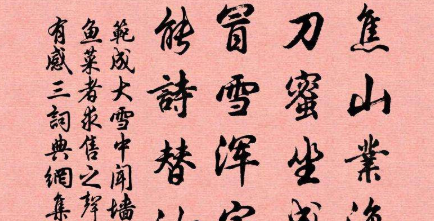 焦山業海
刀蜜坐成
冒雪浑家
能詩替
範成大雪中闻墙
鱼菜者求售之聲
有感三詞典網集